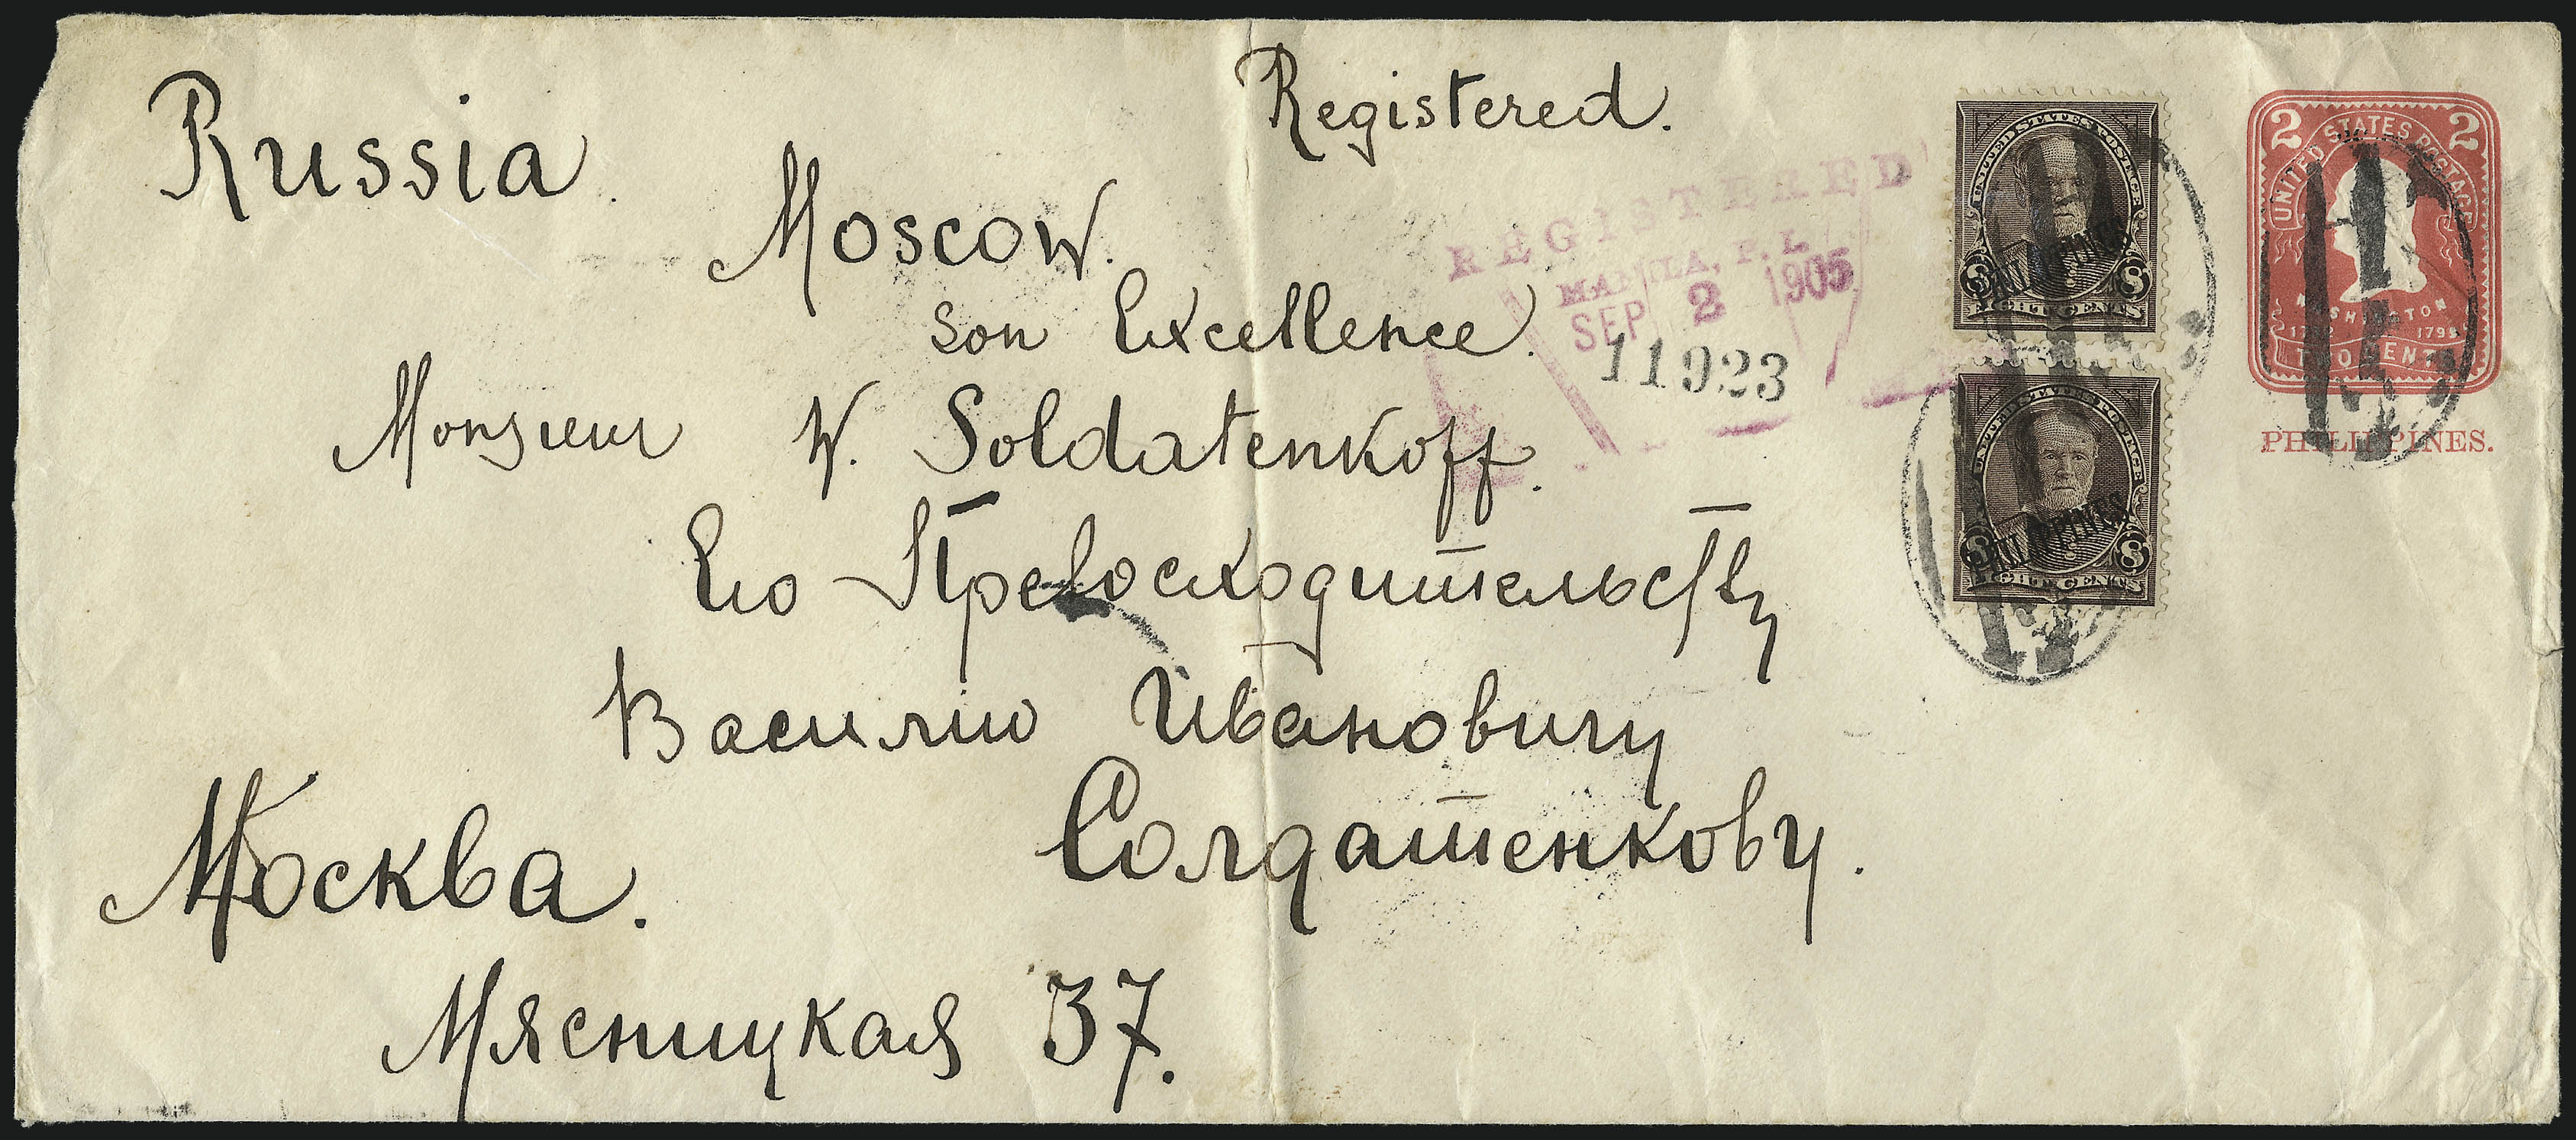 Russia.
Registered.
Moscow.
son Excellence.
Monsieur W. Soldatenkoff.
Его Превосходительству
Василию Ивановичу
Солдатенкову.
Москва.
Мясницкая 37.
REGISTERED
MANILA, P. I.
SEP 2 1905
11923
UNITED STATES POSTAGE
PHILIPPINES
8 8
EIGHT CENTS
UNITED STATES POSTAGE
PHILIPPINES
8 8
EIGHT CENTS
2 2
UNITED STATES POSTAGE
WASHINGTON
1799
TWO CENTS
PHILIPPINES.